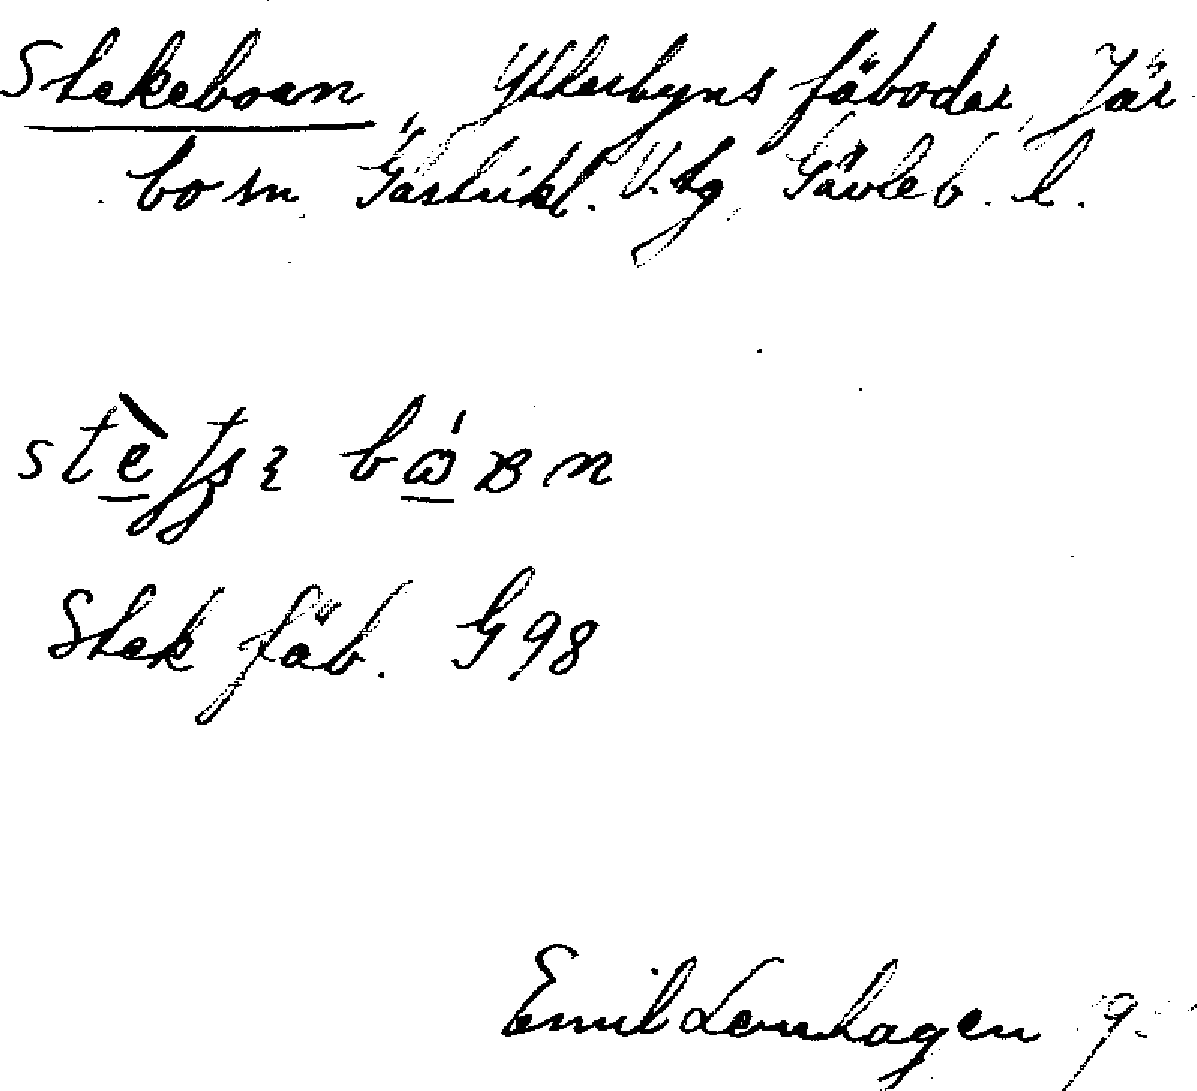 Stekeboan, Ytterbyns fäbodar, Jär-
bo sn. Gästrikl. V. tg, Gävleb. l.
Stek fäb. G 98
Emil Lenhagen